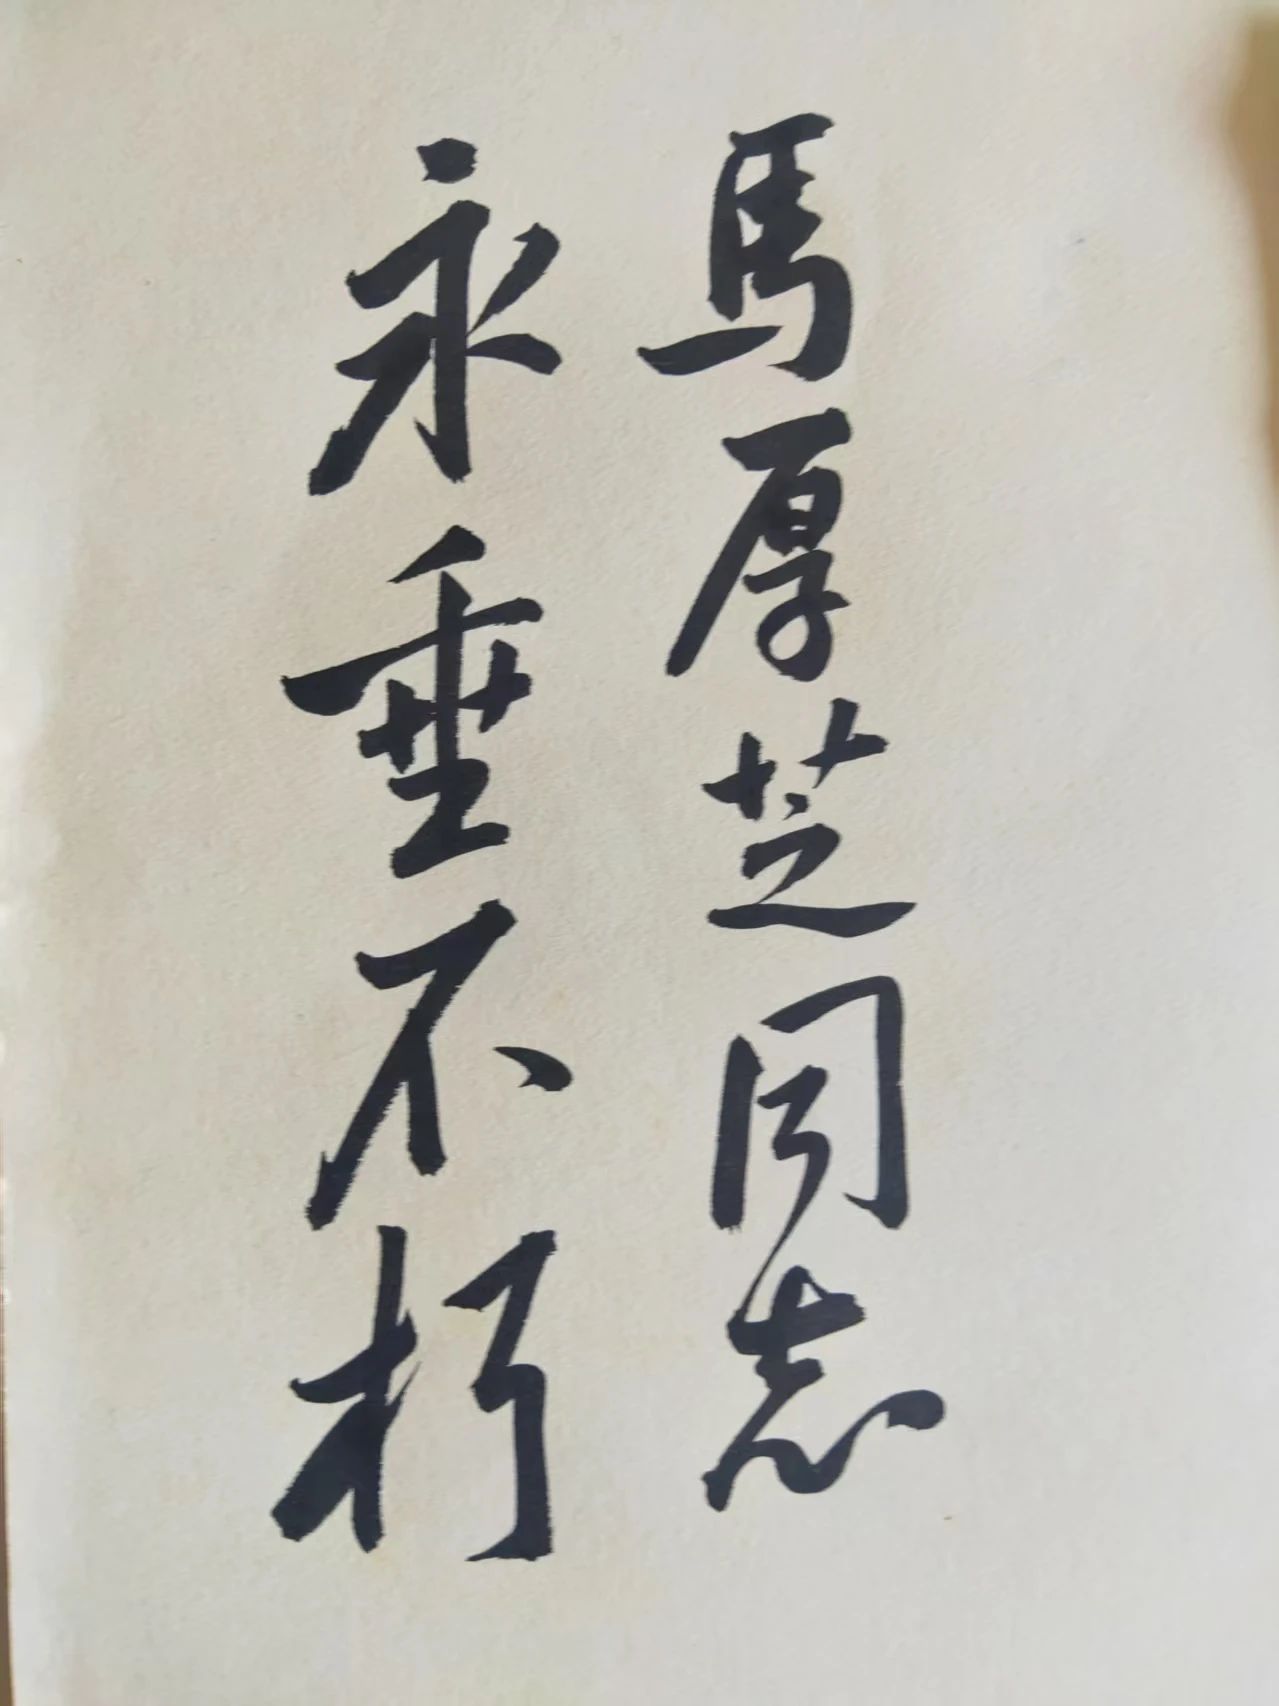 馬厚芝同志
永垂不朽